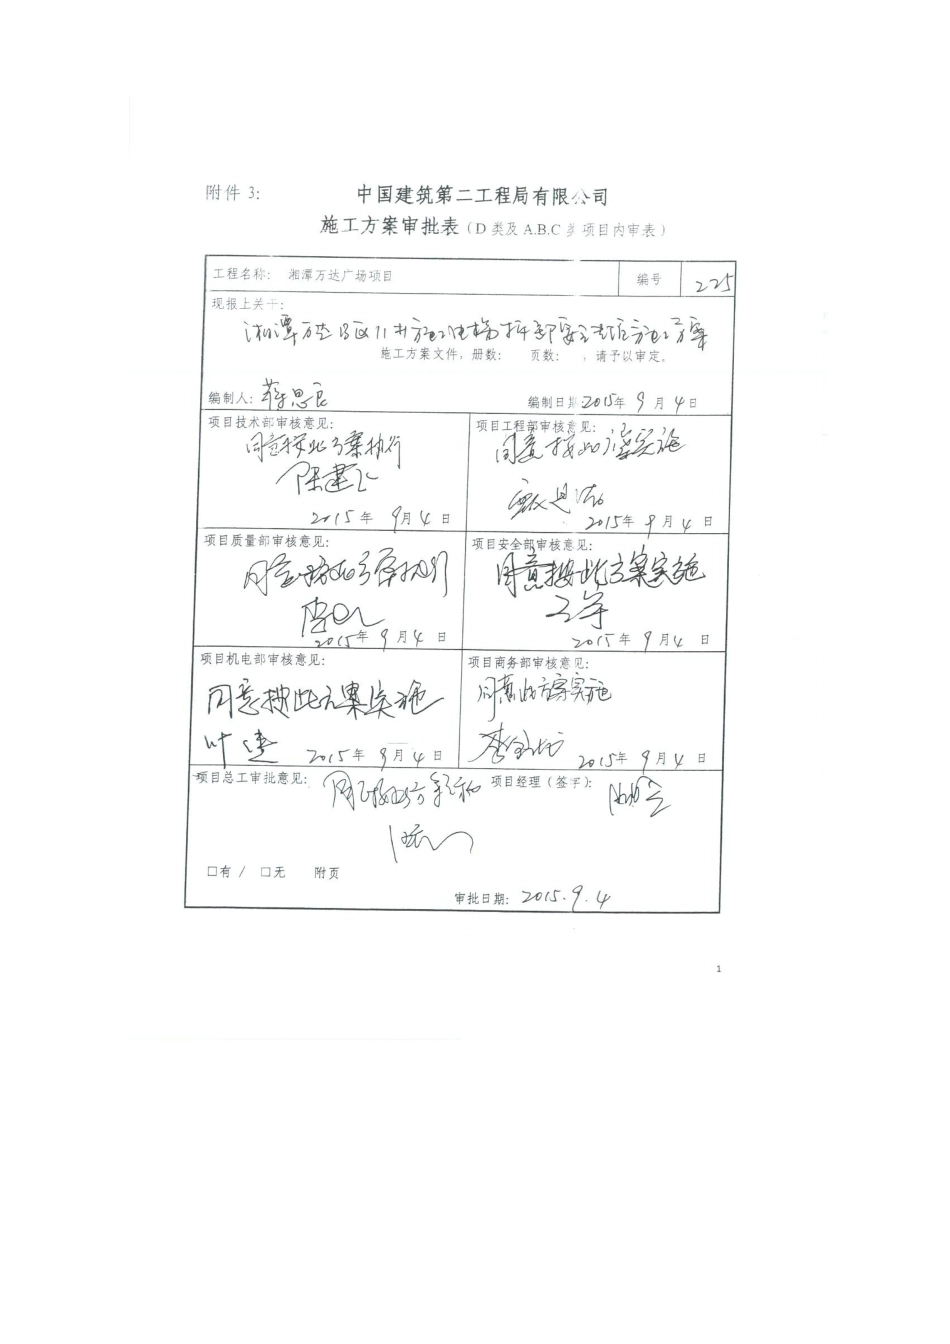 附件 3:
中国建筑第二工程局有限公司
施工方案审批表（D 类及 A.B.C 类 项目内审表）
工程名称： 湘潭万达广场项目 编号 225
现报上关于：
湘潭万达
施工方案文件，册数： 页数： ，请予以审定。
编制人： 蒋思良 编制日期 2015年 9 月 4 日
项目技术部审核意见： 项目工程部审核意见：
同意按此方案执行 同意按此方案实施
陈建飞
2015 年 9月 4 日 2015年 9 月 4 日
项目质量部审核意见： 项目安全部审核意见：
同意按此方案执行 同意按此方案实施
2015年 9 月 4 日 2015 年 9 月 4 日
项目机电部审核意见： 项目商务部审核意见：
同意按此方案实施 同意此方案实施
叶
2015 年 9 月 4 日 2015年 9 月 4 日
项目总工审批意见： 项目经理（签字）：
□有 / □无 附页
审批日期： 2015.9.4
1